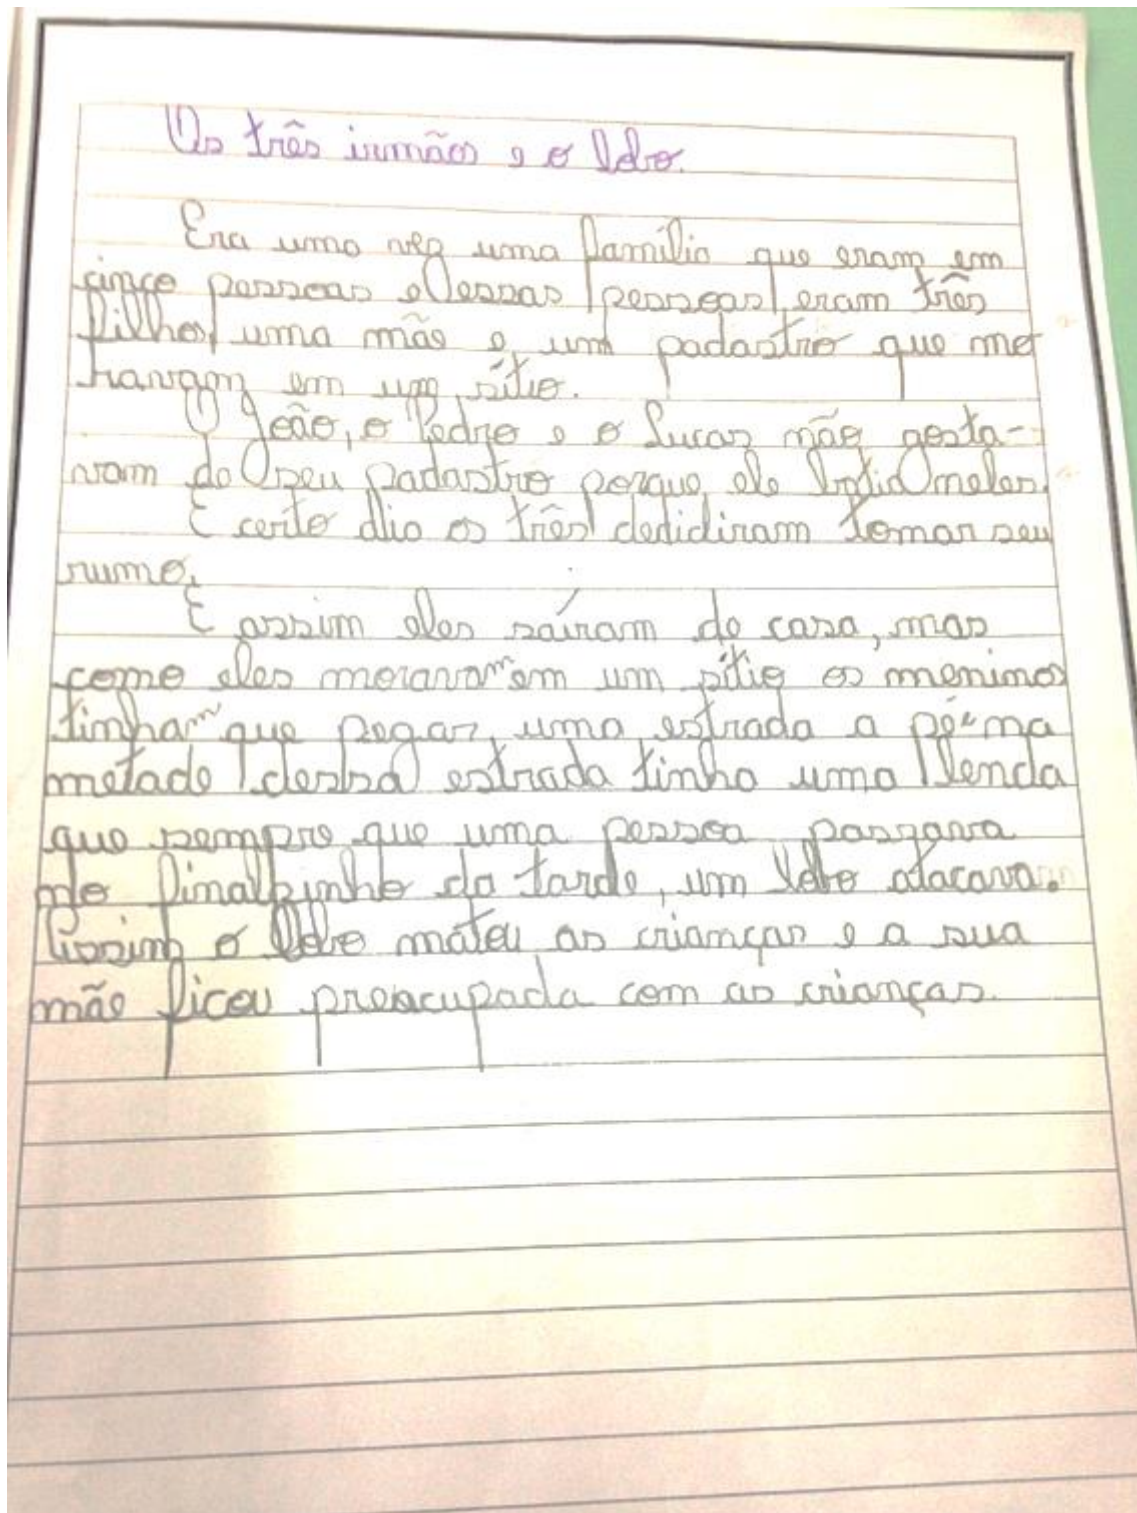 Os três irmãos e o lobo.
Era uma vez uma família que eram em
cinco pessoas e dessas pessoas eram três
filhos uma mãe e um padastro que mo
ravam em um sítio.
O João, o Pedro e o Lucas não gosta-
vam do seu padastro porque ele batia neles.
E certo dia os três dedidiram tomar seu
rumo.
E assim eles saíram de casa, mas
como eles moravam em um sítio os meninos
tinham que pegar uma estrada a pé na
metade dessa estrada tinha uma lenda
que sempre que uma pessoa passava
no finalzinho da tarde, um lobo atacava.
Assim o lobo matou as crianças e a sua
mãe ficou preocupada com as crianças.